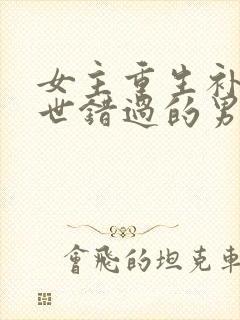 女主重生补
世错过的男
會飛的坦克車